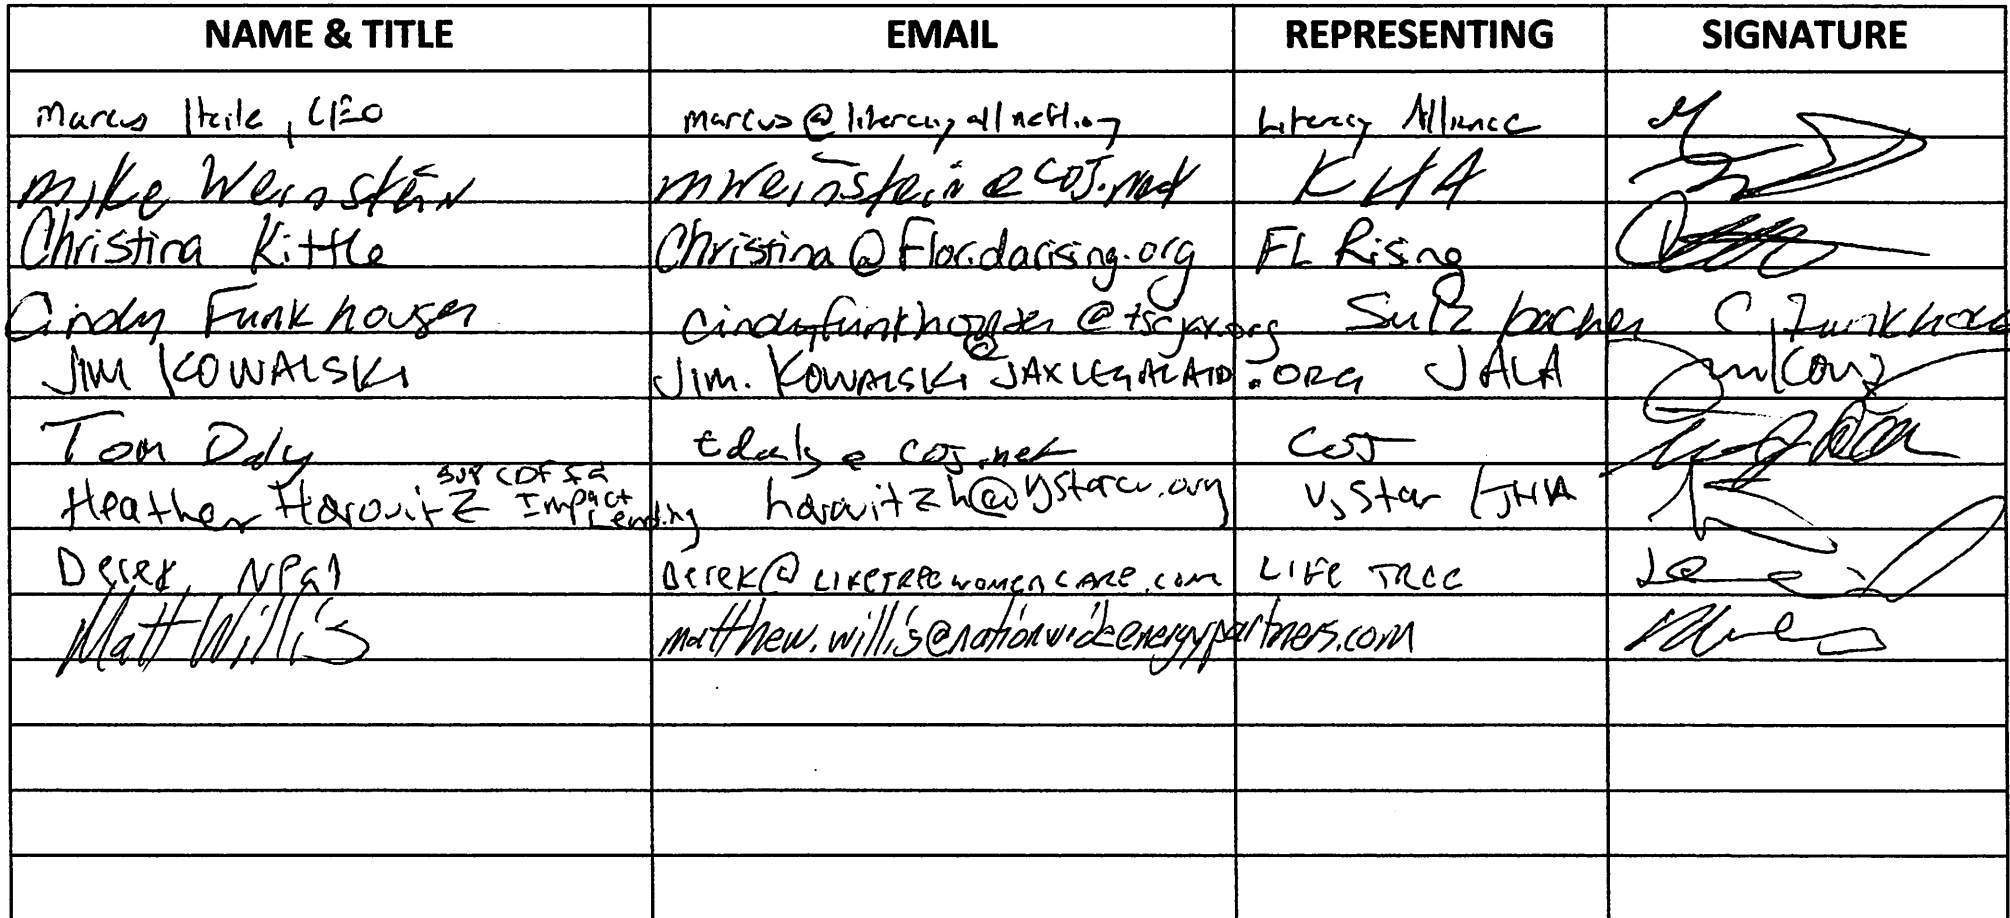 NAME & TITLE EMAIL REPRESENTING SIGNATURE
Marcus Haile, CEO Literacy Alliance
Mike Weinstein mweinstein@coj.net KHA
Christina Kittle Christina@Floridarising.org FL Rising
Cindy Funkhouser cindyfunkhouser@tscjax.org Sulzbacher C. Funkhouser
JIM KOWALSKI JIM.KOWALSKI@JAXLEGALAID.ORG JALA
Tom Daly tdaly@coj.net COJ
Heather Horovitz SVP CDFI & Impact Lending horovitzh@vystarcu.org VyStar /JHA
Derek DEREK@LIFETREEWOMENCARE.COM LIFE TREE
Matt Willis matthew.willis@nationwideenergypartners.com